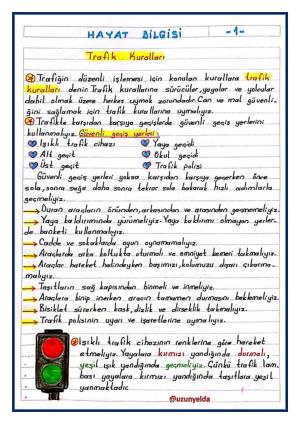 HAYAT BİLGİSİ -1-
Trafik Kuralları
Trafiğin düzenli işlemesi için konulan kurallara trafik
kuralları denir. Trafik kurallarına sürücüler, yayalar ve yolcular
dahil olmak üzere herkes uymak zorundadır. Can ve mal güvenli-
ğini sağlamak için trafik kurallarına uymalıyız.
Trafikte karşıdan karşıya geçişlerde güvenli geçiş yerlerini
kullanmalıyız. Güvenli geçiş yerleri;
Işıklı trafik cihazı Yaya geçidi
Alt geçit Okul geçidi
Üst geçit Trafik polisi
Güvenli geçiş yerleri yoksa karşıdan karşıya geçerken önce
sola, sonra sağa daha sonra tekrar sola bakarak hızlı adımlarla
geçmeliyiz.
Duran araçların önünden, arkasından ve arasından geçmemeliyiz.
Yaya kaldırımında yürümeliyiz. Yaya kaldırımı olmayan yerler-
de banketi kullanmalıyız.
Cadde ve sokaklarda oyun oynamamalıyız.
Araçlarda arka koltukta oturmalı ve emniyet kemeri takmalıyız.
Araçlar hareket halindeyken başımızı, kolumuzu dışarı çıkarma-
malıyız.
Taşıtların sağ kapısından binmeli ve inmeliyiz.
Araçlara binip inerken aracın tamamen durmasını beklemeliyiz.
Bisiklet sürerken kask, dizlik ve dirseklik takmalıyız.
Trafik polisinin uyarı ve işaretlerine uymalıyız.
Işıklı trafik cihazının renklerine göre hareket
etmeliyiz. Yayalara kırmızı yandığında durmalı,
yeşil ışık yandığında geçmeliyiz. Çünkü trafik lam.
bası yayalara kırmızı yandığında taşıtlara yeşil
yanmaktadır.
@uzunyelda 1